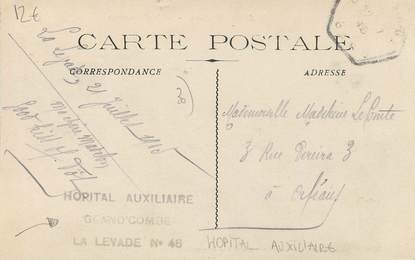 12€
CARTE POSTALE
CORRESPONDANCE
ADRESSE
La Levade
21 Juillet 1910
30
Mademoiselle Madeleine LeComte
3 Rue Pereira 3
à Orléans
HOPITAL AUXILIAIRE
GRAND'COMBE
LA LEVADE No 46
HOPITAL AUXILIAIRE